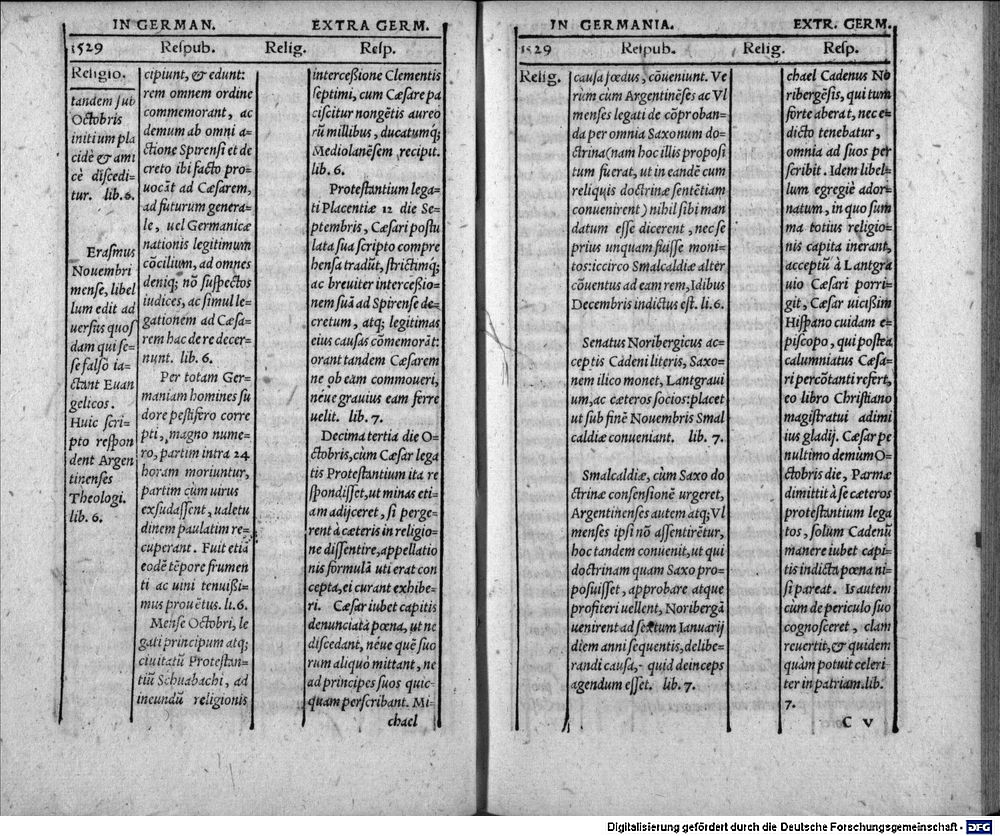 IN GERMAN. EXTRA GERM.
1529 Respub. Relig. Resp.
Religio.
tandem sub
Octobris
initium pla
cidè & ami
cè discedi-
tur. lib. 6.
Erasmus
Nouembri
mense, libel
lum edit ad
uersus quos
dam qui se-
se falsò ia-
ctant Euan
gelicos.
Huic scri-
pto respon
dent Argen
tinenses
Theologi.
lib. 6.
cipiunt, & edunt:
rem omnem ordine
commemorant, ac
demum ab omni a-
ctione Spirensi et de
creto ibi facto pro-
uocāt ad Cæsarem,
ad futurum genera-
le, uel Germanicæ
nationis legitimum
cōcilium, ad omnes
deniq; nō suspectos
iudices, ac simul le-
gationem ad Cæsa-
rem hac de re decer-
nunt. lib. 6.
Per totam Ger-
maniam homines su
dore pestifero corre
pti, magno nume-
ro, partim intra 24
horam moriuntur,
partim cùm uirus
exsudassent, ualetu
dinem paulatim re-
cuperant. Fuit etiā
eodē tēpore frumen
ti ac uini tenuißi-
mus prouētus. li. 6.
Mense Octobri, le
gati principum atq;
ciuitatū Protestan-
tiū Schuabachi, ad
ineundū religionis
interceßione Clementis
septimi, cum Cæsare pa
ciscitur nongētis aureo
rū millibus, ducatumq;
Mediolanēsem recipit.
lib. 6.
Protestantium lega-
ti Placentiæ 12 die Se-
ptembris, Cæsari postu
lata sua scripto compre
hensa tradūt, strictimq;
ac breuiter interceßio-
nem suā ad Spirense de-
cretum, atq; legitimas
eius causas cōmemorāt:
orant tandem Cæsarem
ne ob eam commoueri,
néue grauius eam ferre
uelit. lib. 7.
Decima tertia die O-
ctobris, cùm Cæsar lega
tis Protestantium ita re
spondisset, ut minas eti-
am adijceret, si perge-
rent à cæteris in religio-
ne dissentire, appellatio
nis formulā uti erat con
cepta, ei curant exhibe-
ri. Cæsar iubet capitis
denunciatà pœna, ut ne
discedant, neue quē suo
rum aliquò mittant, ne
ad principes suos quic-
quam perscribant. Mi-
chael
IN GERMANIA. EXTR. GERM.
1529 Respub. Relig. Resp.
Relig.
causa fœdus, cōueniunt. Ve
rùm cùm Argentinēses ac Vl
menses legati de cōproban-
da per omnia Saxonum do-
ctrina (nam hoc illis proposi
tum fuerat, ut in eandē cum
reliquis doctrinæ sentētiam
conuenirent) nihil sibi man
datum esse dicerent, nec se
prius unquam fuisse moni-
tos: iccirco Smalcaldiæ alter
cōuentus ad eam rem, Idibus
Decembris indictus est. li. 6.
Senatus Noribergicus ac-
ceptis Cadeni literis, Saxo-
nem ilico monet, Lantgraui
um, ac cæteros socios: placet
ut sub finē Nouembris Smal
caldiæ conueniant. lib. 7.
Smalcaldiæ, cùm Saxo do
ctrinæ consensionē urgeret,
Argentinenses autem atq; Vl
menses ipsi nō assentirētur,
hoc tandem conuenit, ut qui
doctrinam quam Saxo pro-
posuisset, approbare atque
profiteri uellent, Noribergā
uenirent ad sextum Ianuarij
diem anni sequentis, delibe-
randi causa, quid deinceps
agendum esset. lib. 7.
chael Cadenus No
ribergēsis, qui tum
fortè aberat, nec e-
dicto tenebatur,
omnia ad suos per
scribit. Idem libel-
lum egregiè ador-
natum, in quo sum
ma totius religio-
nis capita inerant,
acceptū à Lantgra
uio Cæsari porri-
git, Cæsar uicißim
Hispano cuidam e-
piscopo, qui postea
calumniatus Cæsa-
ri percōtanti refert,
eo libro Christiano
magistratui adimi
ius gladij. Cæsar pe
nultimo demùm O-
ctobris die, Parmæ
dimittit à se cæteros
protestantium lega
tos, solùm Cadenū
manere iubet capi-
tis indicta pœna ni-
si pareat. Is autem
cùm de periculo suo
cognosceret, clam
reuertit, & quidem
quàm potuit celeri
ter in patriam. lib.
7.
C v
Digitalisierung gefördert durch die Deutsche Forschungsgemeinschaft - DFG